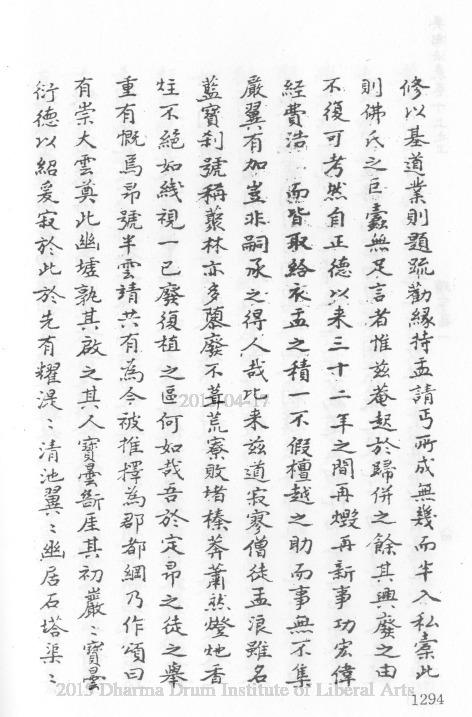 修以基道業則題疏勸緣持盂請丐所成無幾而半入私橐此
則佛氏之巨蠹無足言者惟茲菴起於歸併之餘其興廢之由
不復可考然自正德以來三十二年之間再燬再新事功宏偉
經費浩 而皆取給衣盂之積一不假檀越之助而事無不集
嚴翼有加豈非嗣承之得人哉比來茲道寂寥僧徒孟浪雖名
藍寶剎號稱叢林亦多隳廢不葺荒寮敗堵榛莽蕭然燈灺香
炷不絕如綫視一已廢復植之區何如哉吾於定昂之徒之舉
重有慨焉昂號半雲靖共有為今被推擇為郡都綱乃作頌曰
有崇大雲奠此幽墟孰其啟之其人寶曇斷崖其初巖巖寶曇
衍德以紹爰寂於此於先有耀湜湜清池翼翼幽居石塔渠渠
2013-04-17
2013 Dharma Drum Institute of Liberal Arts
1294